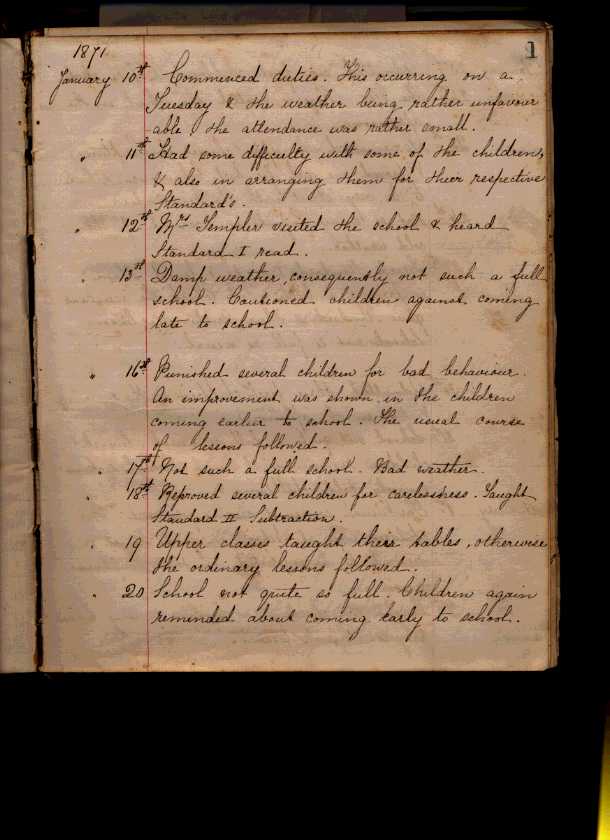 1871
1
January 10th Commenced duties. This occurring on a
Tuesday & the weather being rather unfavour
able the attendance was rather small.
" 11th Had some difficulty with some of the children,
& also in arranging them for their respective
Standard's.
" 12th Mrs Templer visited the school & heard
Standard I read.
" 13th Damp weather, consequently not such a full
school. Cautioned children against coming
late to school.
" 16th Punished several children for bad behaviour.
An improvement was shown in the children
coming earlier to school. The usual course
of lessons followed.
" 17th Not such a full school. Bad weather.
" 18th Reproved several children for carelessness. Taught
Standard II Subtraction.
" 19 Upper classes taught their tables, otherwise
the ordinary lessons followed.
" 20 School not quite so full. Children again
reminded about coming early to school.